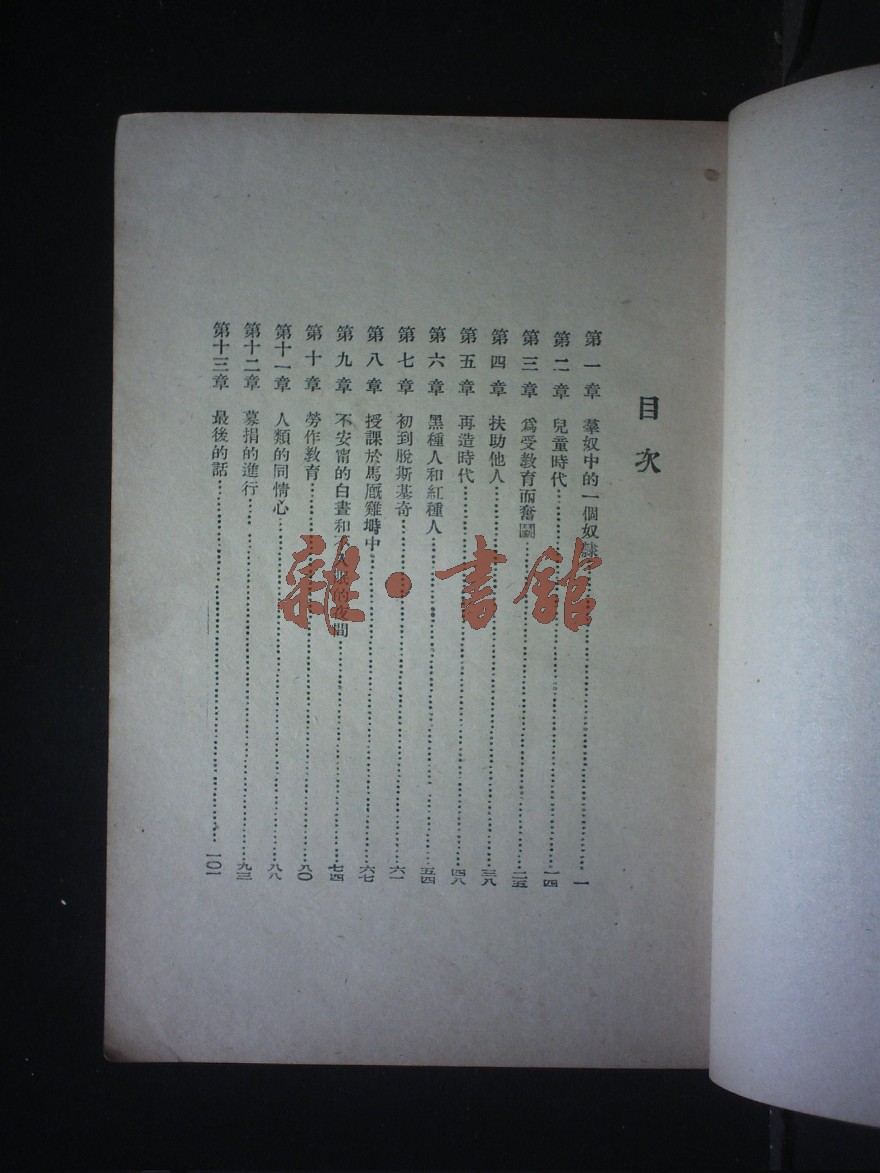 目次
第一章 羣奴中的一個奴隸 一
第二章 兒童時代 一四
第三章 爲受教育而奮鬭 二五
第四章 扶助他人 三八
第五章 再造時代 四八
第六章 黑種人和紅種人 五四
第七章 初到脫斯基奇 六一
第八章 授課於馬厩雞塒中 六七
第九章 不安甯的白晝和 眠的夜間 七四
第十章 勞作教育 八〇
第十一章 人類的同情心 八八
第十二章 募捐的進行 九三
第十三章 最後的話 一〇一
雜·書館